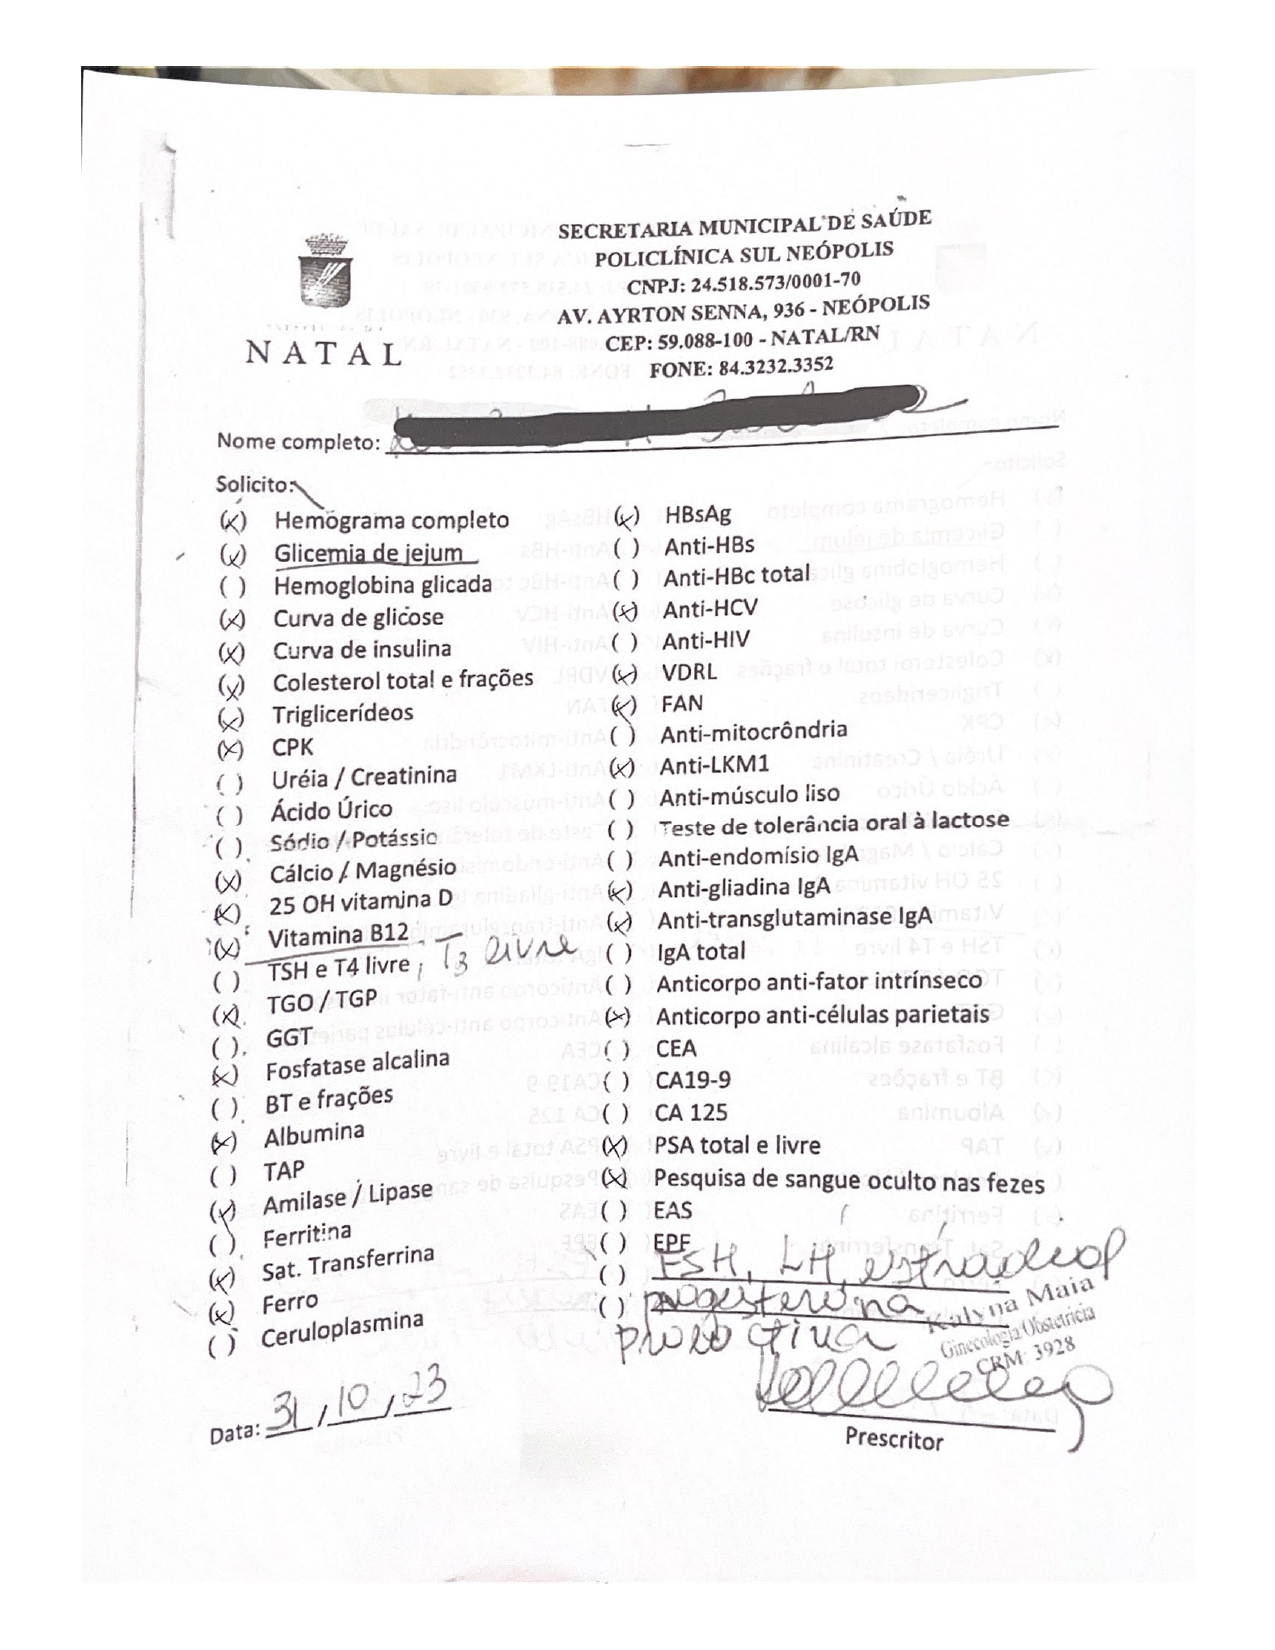 SECRETARIA MUNICIPAL DE SAÚDE
POLICLÍNICA SUL NEÓPOLIS
CNPJ: 24.518.573/0001-70
AV. AYRTON SENNA, 936 - NEÓPOLIS
CEP: 59.088-100 - NATAL/RN
FONE: 84.3232.3352
NATAL
Nome completo:
Solicito:
(x) Hemograma completo
(x) Glicemia de jejum
( ) Hemoglobina glicada
(x) Curva de glicose
(x) Curva de insulina
(x) Colesterol total e frações
(x) Triglicerídeos
(x) CPK
( ) Uréia / Creatinina
( ) Ácido Úrico
( ) Sódio / Potássio
(x) Cálcio / Magnésio
(x) 25 OH vitamina D
(x) Vitamina B12
( ) TSH e T4 livre, T3 livre
(x) TGO / TGP
( ) GGT
(x) Fosfatase alcalina
( ) BT e frações
(x) Albumina
( ) TAP
(x) Amilase / Lipase
( ) Ferritina
(x) Sat. Transferrina
(x) Ferro
( ) Ceruloplasmina
(x) HBsAg
( ) Anti-HBs
( ) Anti-HBc total
(x) Anti-HCV
( ) Anti-HIV
(x) VDRL
(x) FAN
( ) Anti-mitocrôndria
(x) Anti-LKM1
( ) Anti-músculo liso
( ) Teste de tolerância oral à lactose
( ) Anti-endomísio IgA
(x) Anti-gliadina IgA
(x) Anti-transglutaminase IgA
( ) IgA total
( ) Anticorpo anti-fator intrínseco
(x) Anticorpo anti-células parietais
( ) CEA
( ) CA19-9
( ) CA 125
(x) PSA total e livre
(x) Pesquisa de sangue oculto nas fezes
( ) EAS
( ) EPF
( ) FSH, LH, estradiol
( ) progesterona
prolactina
Kalyna Maia
Ginecologia/Obstetrícia
CRM: 3928
Data: 31/10/23
Prescritor